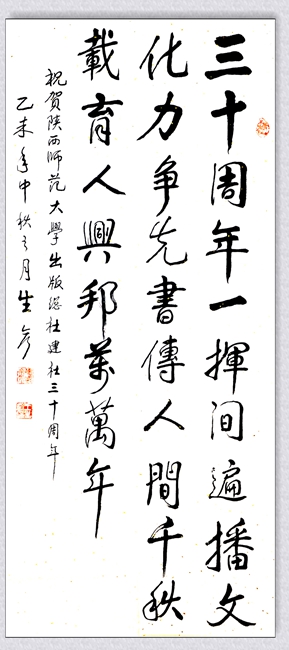 三十周年一揮间遍播文
化力争先書傳人間千秋
載育人興邦萬萬年
祝賀陕西师范大學出版總社建社三十周年
乙未年中秋之月生彦